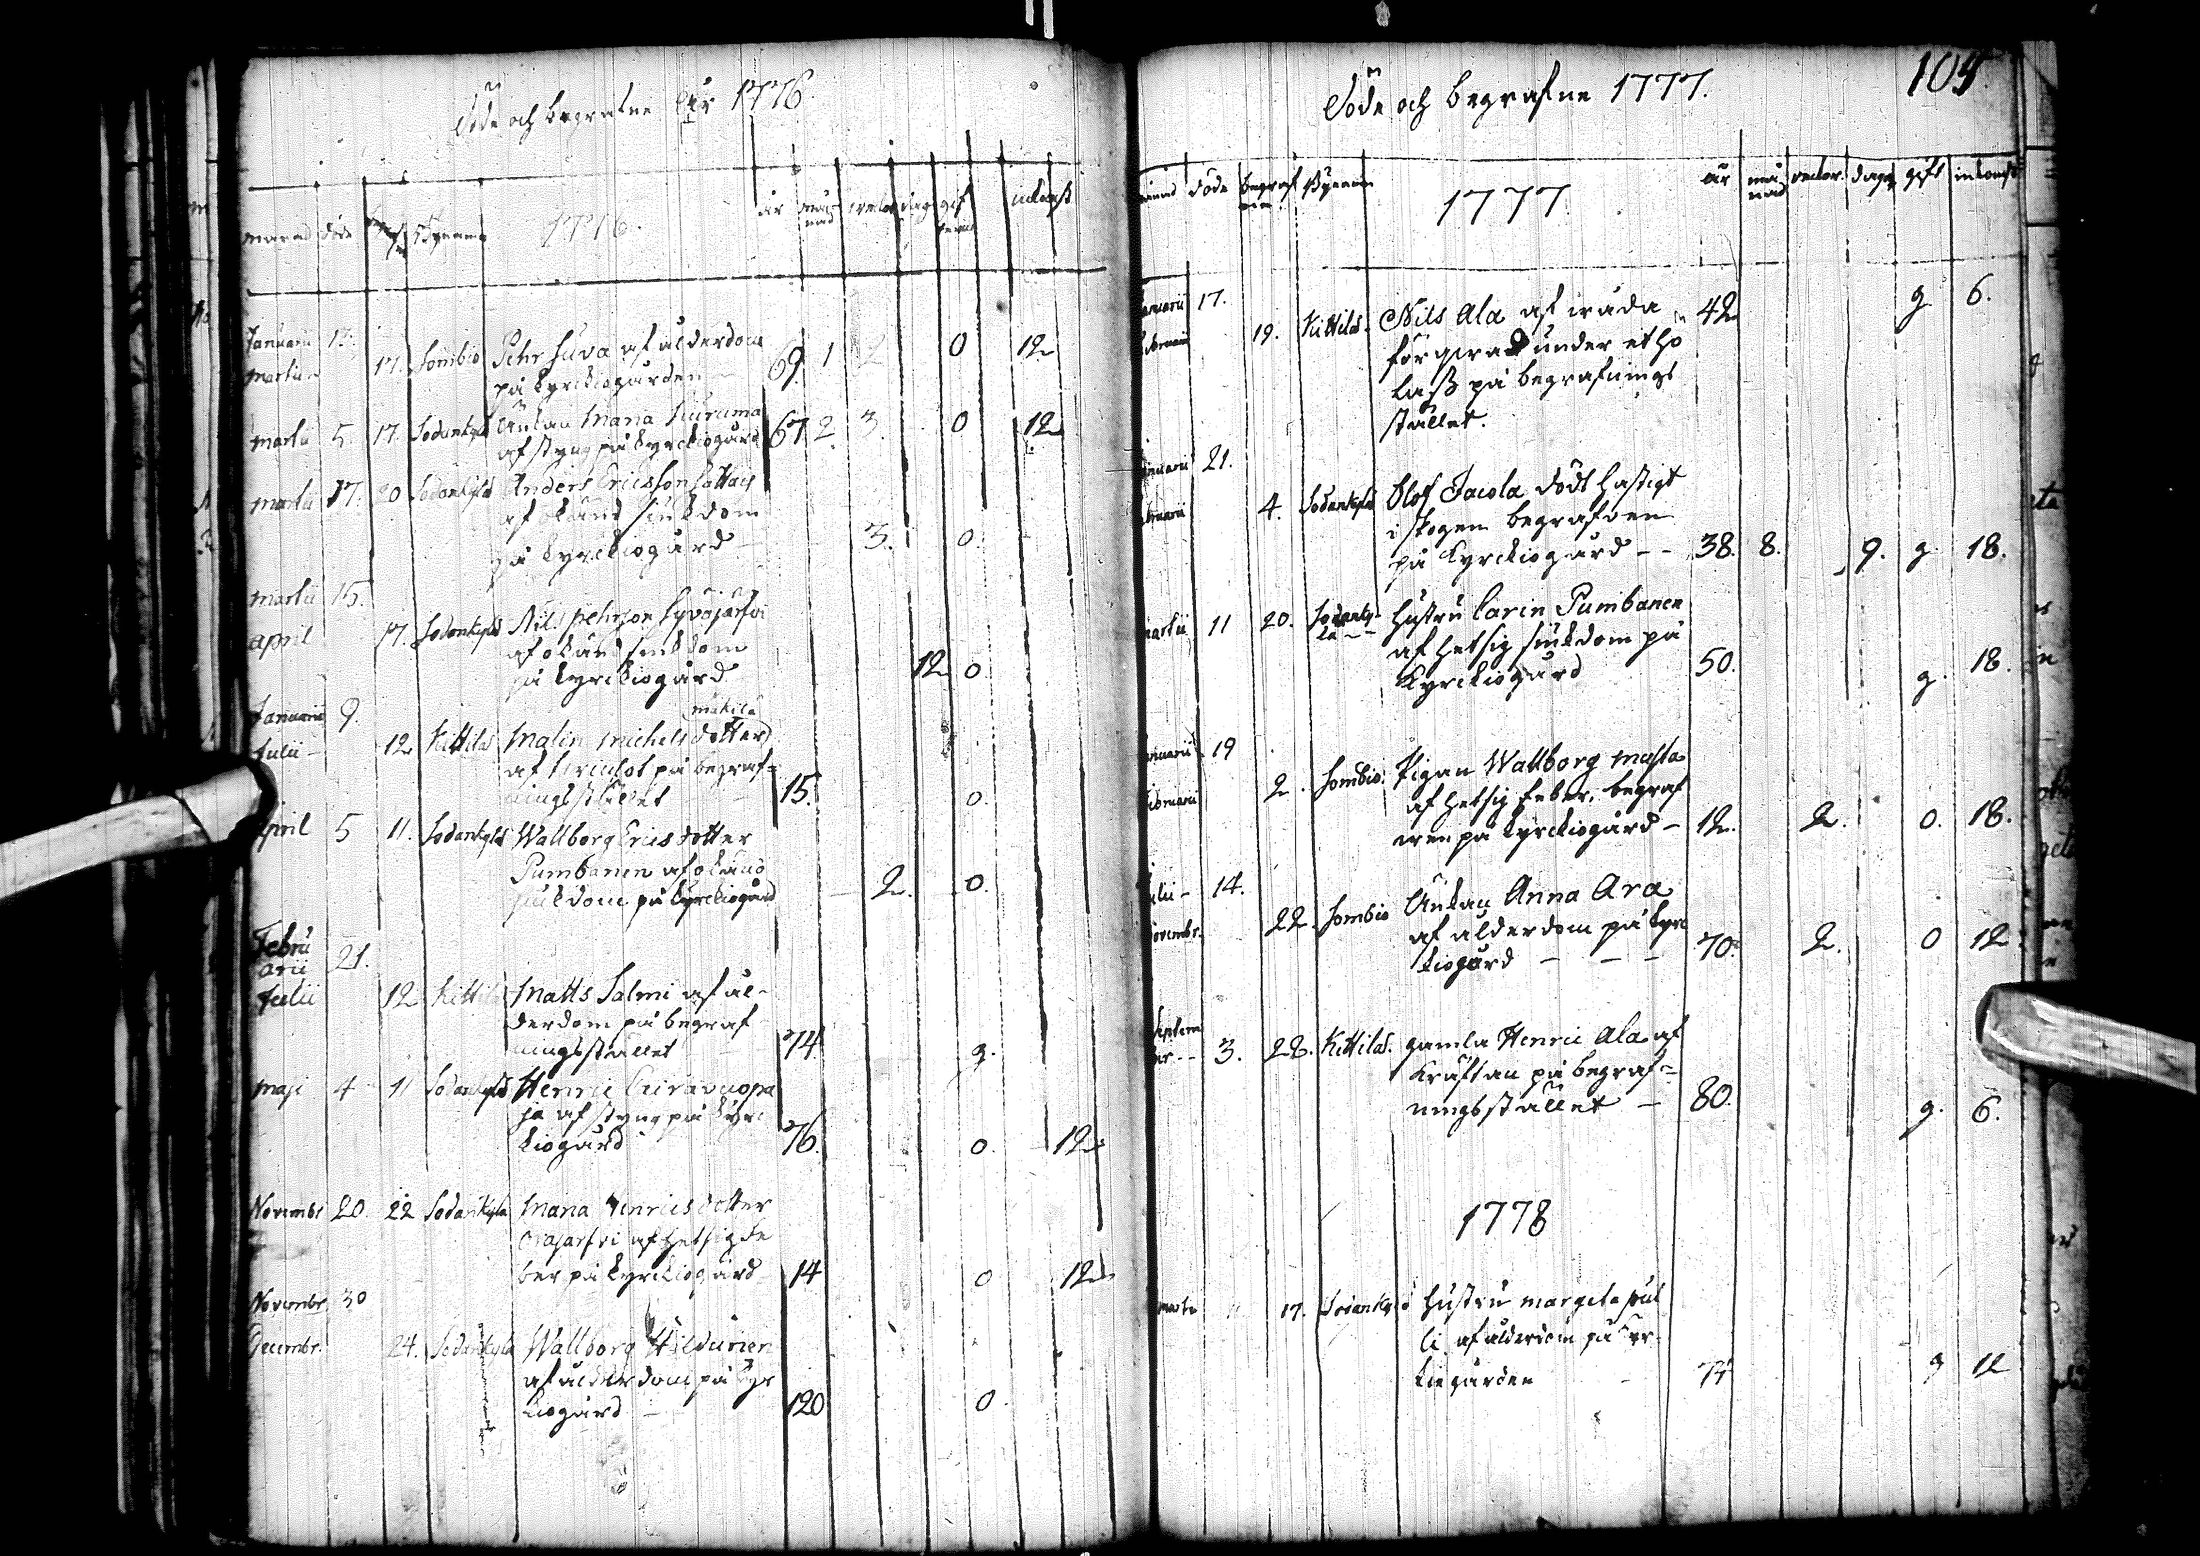 Döde och begrafne År 1776.
månad döde Bÿenamn 1776. år månad veckor dag gift inkomst
Januarii 13.
Martii 17. Sombio Pehr Suva af ålderdom
på kyrckiogården 69. 1 2 0 12
Martii 5. 17. Sodankylä Änkan Maria
af styng på kyrckiogård 67 2. 3. 0 12
Martii 17. 20 Sodankylä Anders Ericsson Sattan
af okänd siukdom
på kyrckiogård 3. 0.
Martii 15.
April 17. Sodankylä Nils Pehrson Syväjärfvi
af okänd siukdom
på kyrckiogård 12 0
Januarii 9. mäkilä
Julii 12 Kittilä Malin Michelsdotter
af på begraf=
ningsstället 15. 0.
April 5 11. Sodankylä Wallborg Ericsdotter
Pumbanen af okänd
siukdom på kyrckiogård 2. 0.
Febru
arii 21.
Julii 12 Kittilä Matts Salmi af ål-
derdom på begraf
ningsstället 74 g.
Maji 4 11 Sodankylä Henric
ja af styng på kyrc
kiogård 76. 0. 12
Novembr 20. 22 Sodankyla Maria Henricsdotter
Orajärfvi af hetsig fe
ber på kyrckiogård 14 0 12
Novembr. 30
Decembr. 24. Sodankyla Wallborg Hildunen
af ålderdom på kyr
kiogård 120 0
Döde och begrafne 1777. 104
månad döde begraf
ven Bÿenamn 1777 år må
nad veckor. dagar gift inkomst
Januarii 17.
Februarii 19. Kittilä. Nils Ala af våda 42 g 6.
förqvad under et hö
lass på begrafnings
stället.
Januarii 21.
Februarii 4. Sodankylä Olof Jacola dödt hastigt
i skogen begrafven
på kyrckiogård -- 38. 8. 9. g. 18.
Martii 11 20. Sodanky-
lä -- Hustru Carin Pumbanen
af hetsig siukdom på
kyrckiogård 50. g. 18.
Januarii 19
Februarii 2. Sombio. Pigan Wallborg Musta
af hetsig feber, begraf
ven på kyrckiogård - 12. 2. 0. 18.
Julii - 14.
Novembr. 22. Sombio Änkan Anna Ara
af ålderdom på kyrc
kiogård - - - 70. 2. 0 12
Septem
ber -- 3. 28. Kittilä. gamla Henric Ala af
kräftan på begraf=
ningsstället - 80. g. 6.
1778
Martii 17. Sodankylä Hustru Margeta
li af ålderdom på kyr-
kiogården - 74 g 12